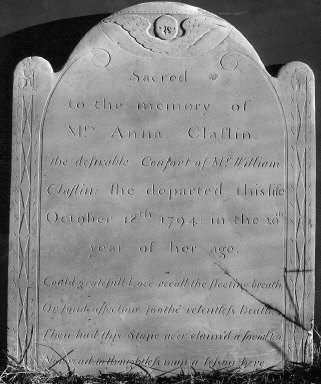 Sacred
to the memory of
Mrs Anna Claflin,
the desirable Consort of Mr William
Claflin, she departed this life
October 12th 1794: in the 20th
year of her age
Could gratefull Love recall the fleeting breath,
Or fond affection soothe relentless Death,
Then had this Stone ne'er claim'd a social tear
read to thoughtless man a lesson here